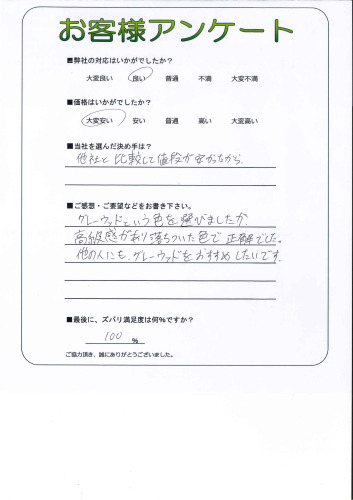 お客様アンケート
■弊社の対応はいかがでしたか？
大変良い 良い 普通 不満 大変不満
■価格はいかがでしたか？
大変安い 安い 普通 高い 大変高い
■当社を選んだ決め手は？
他社と比較して値段が安かったから。
■ご感想・ご要望などをお書き下さい。
グレーウッドという色を選びましたが、
高級感があり落ちついた色で正解でした。
他の人にも、グレーウッドをおすすめしたいです。
■最後に、ズバリ満足度は何%ですか？
100 %
ご協力頂き、誠にありがとうございました。